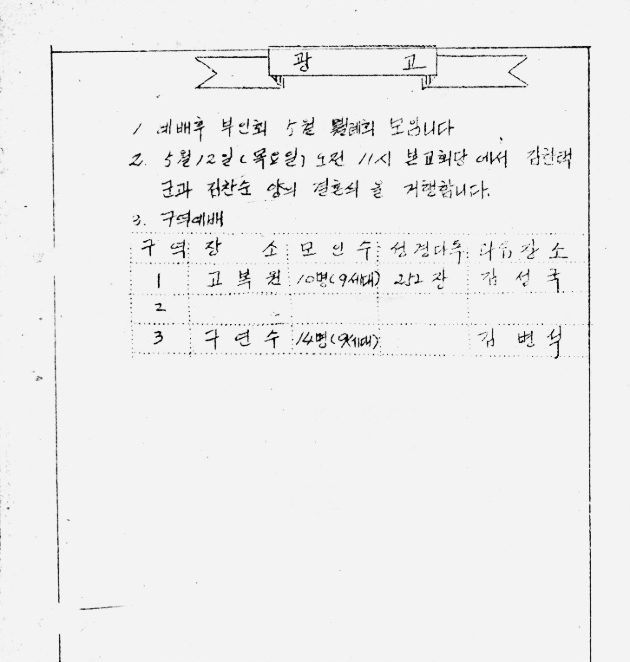 광 고
1. 예배후 부인회 5월 월례회 모입니다
2. 5월12일(목요일) 오전 11시 본교회당에서 김현택
군과 김찬순 양의 결혼식을 거행합니다.
3. 구역예배
구역 장 소 모인수 성경다독 다음장소
1 고복원 10명(9세대) 252장 김성국
2
3 구연수 14명(9세대) 김변석